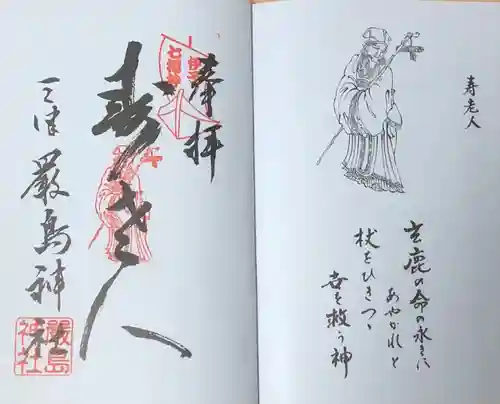 寿老人
玄鹿の命の永きに
あやかれと
杖をひきつゝ
吾を救う神
奉拝
伊予
七福神
寿老人
三津 嚴島神社
嚴島
神社